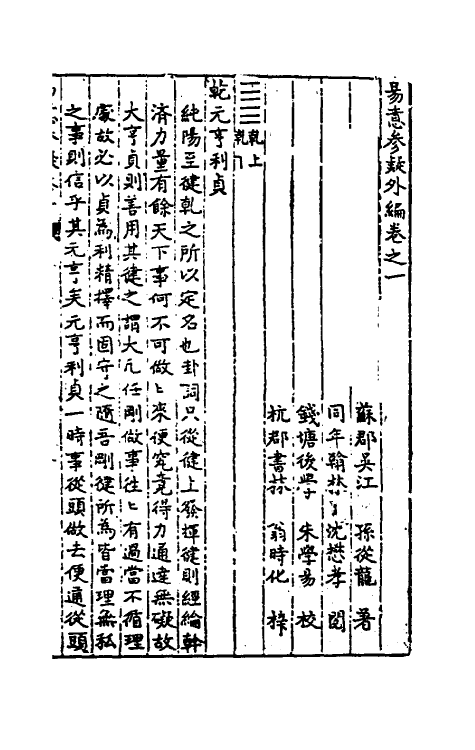 易意參疑外編卷之一
蘇郡吳江 孫從龍 著
同年翰林 沈懋孝 閱
錢塘後學 朱學易 校
杭郡書林 翁時化 梓
乾上
乾下
乾元亨利貞
純陽至健乾之所以定名也卦詞只從健上發揮健則經綸幹
濟力量有餘天下事何不可做〻來便究竟得力通達無礙故
大亨貞則善用其健之謂大凡任剛做事往〻有過當不循理
處故必以貞為利精擇而固守之隨吾剛健所為皆當理無私
之事則信乎其元亨矣元亨利貞一時事從頭做去便通從頭